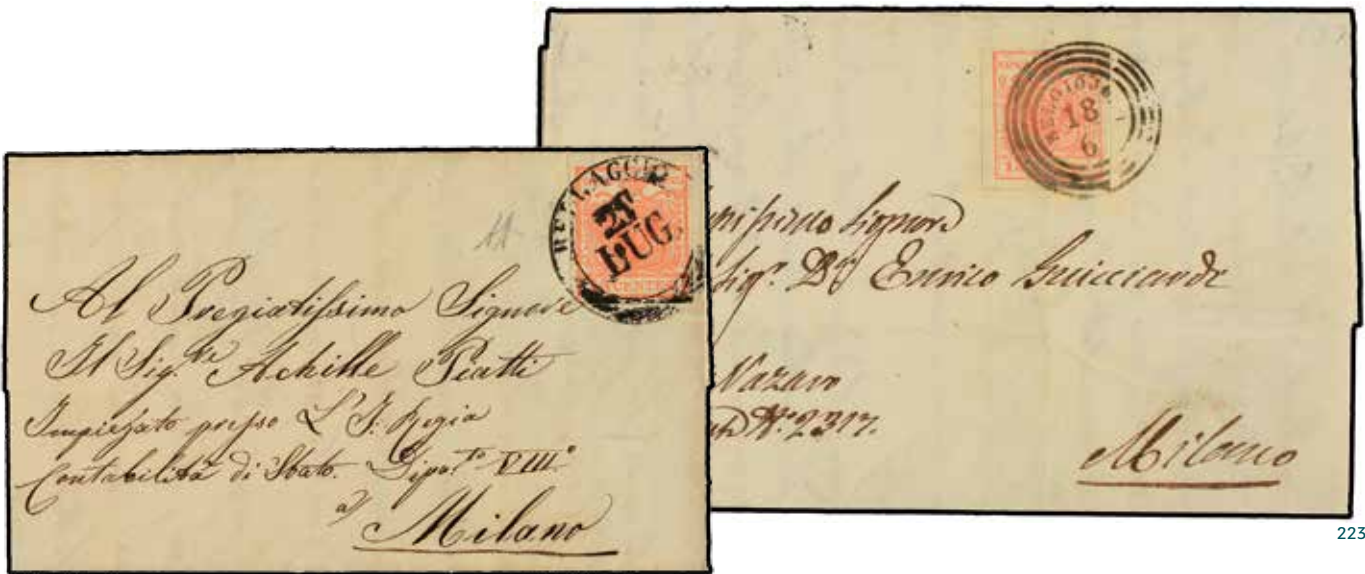 11
BELLAGGIO
25
LUG.
CENTES
Al Pregiatissimo Signore
Il Sig.re Achille Piatti
Impiegato presso L'I: Regia
Contabilità di Stato. Dipar.to VIII°
a/ Milano
18
6
Signore
Sig.r D.r Enrico Guicciardi
Nazaro
N.° 2317.
Milano
223